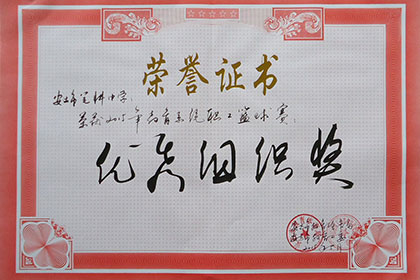 荣誉证书
安丘市笔耕中学:
荣获2015年教育系统职工篮球赛
优秀组织奖